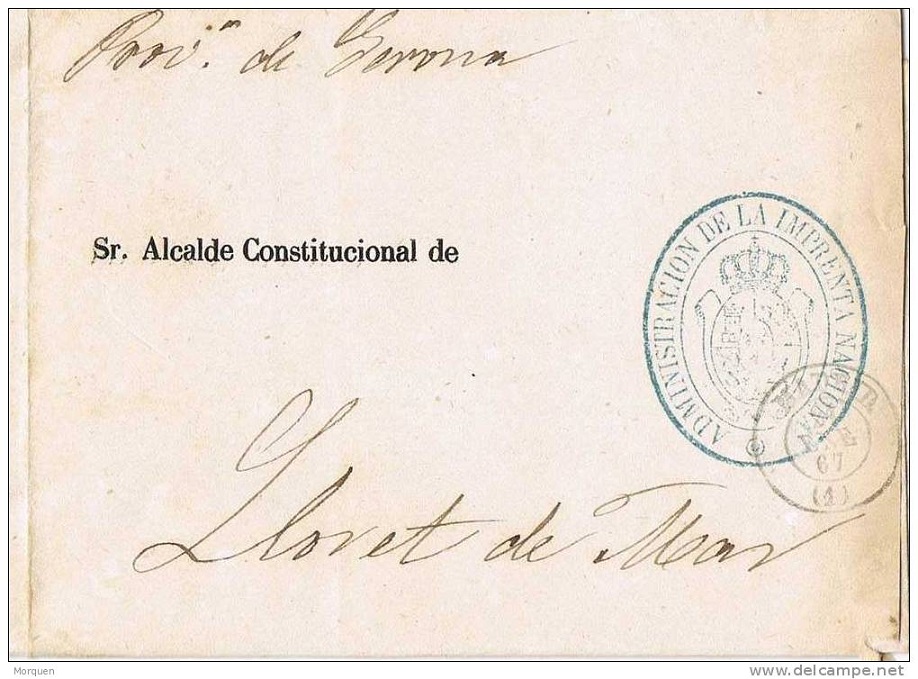 Prov.ª de Gerona
Sr. Alcalde Constitucional de
ADMINISTRACION DE LA IMPRENTA NACIONAL
67
(1)
Lloret de Mar
Morquen
delcampe.net